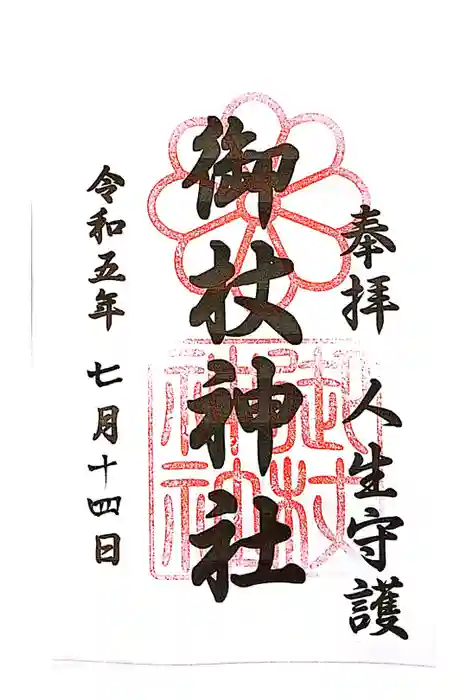 奉拝 人生守護
御杖神社
御杖神社
令和五年 七月十四日